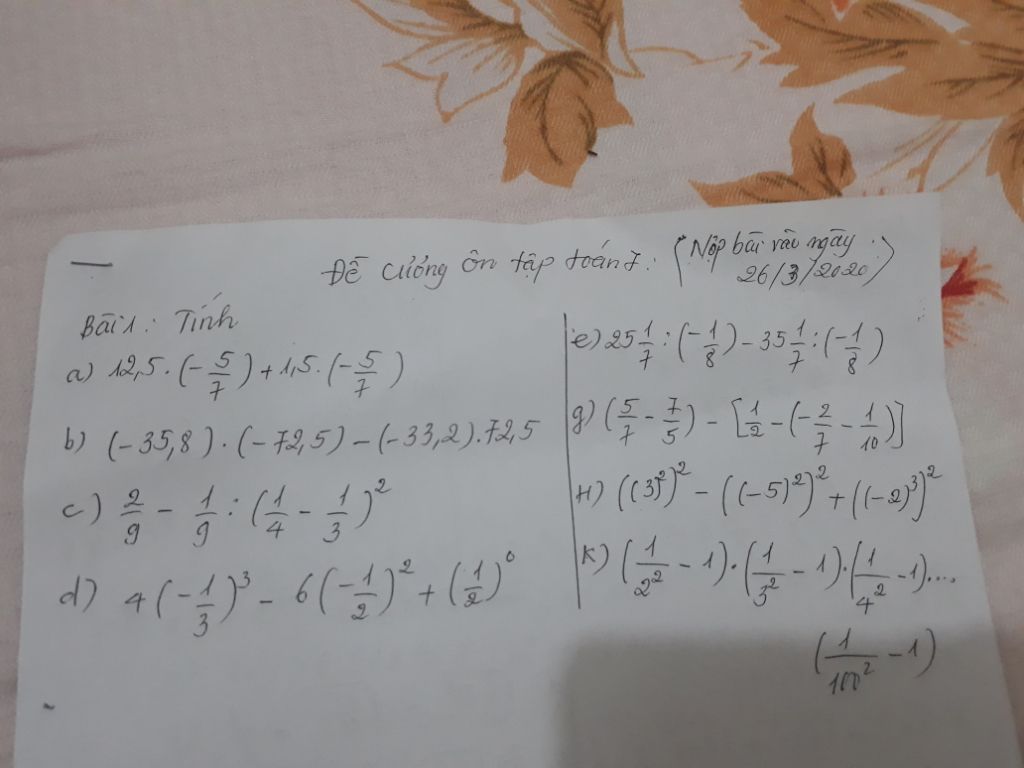 Đề cương ôn tập toán 7: (Nộp bài vào ngày
26/3/2020)
Bài 1: Tính
a) 12,5 · (-5/7) + 1,5 · (-5/7)
b) (-35,8) · (-72,5) - (-33,2).72,5
c) 2/9 - 1/9 : (1/4 - 1/3)²
d) 4(-1/3)³ - 6(-1/2)² + (1/2)⁰
e) 25 1/7 : (-1/8) - 35 1/7 : (-1/8)
g) (5/7 - 7/5) - [1/2 - (-2/7 - 1/10)]
H) ((3)²)² - ((-5)²)² + ((-2)³)²
K) (1/2² - 1) · (1/3² - 1) · (1/4² - 1)....
(1/100² - 1)